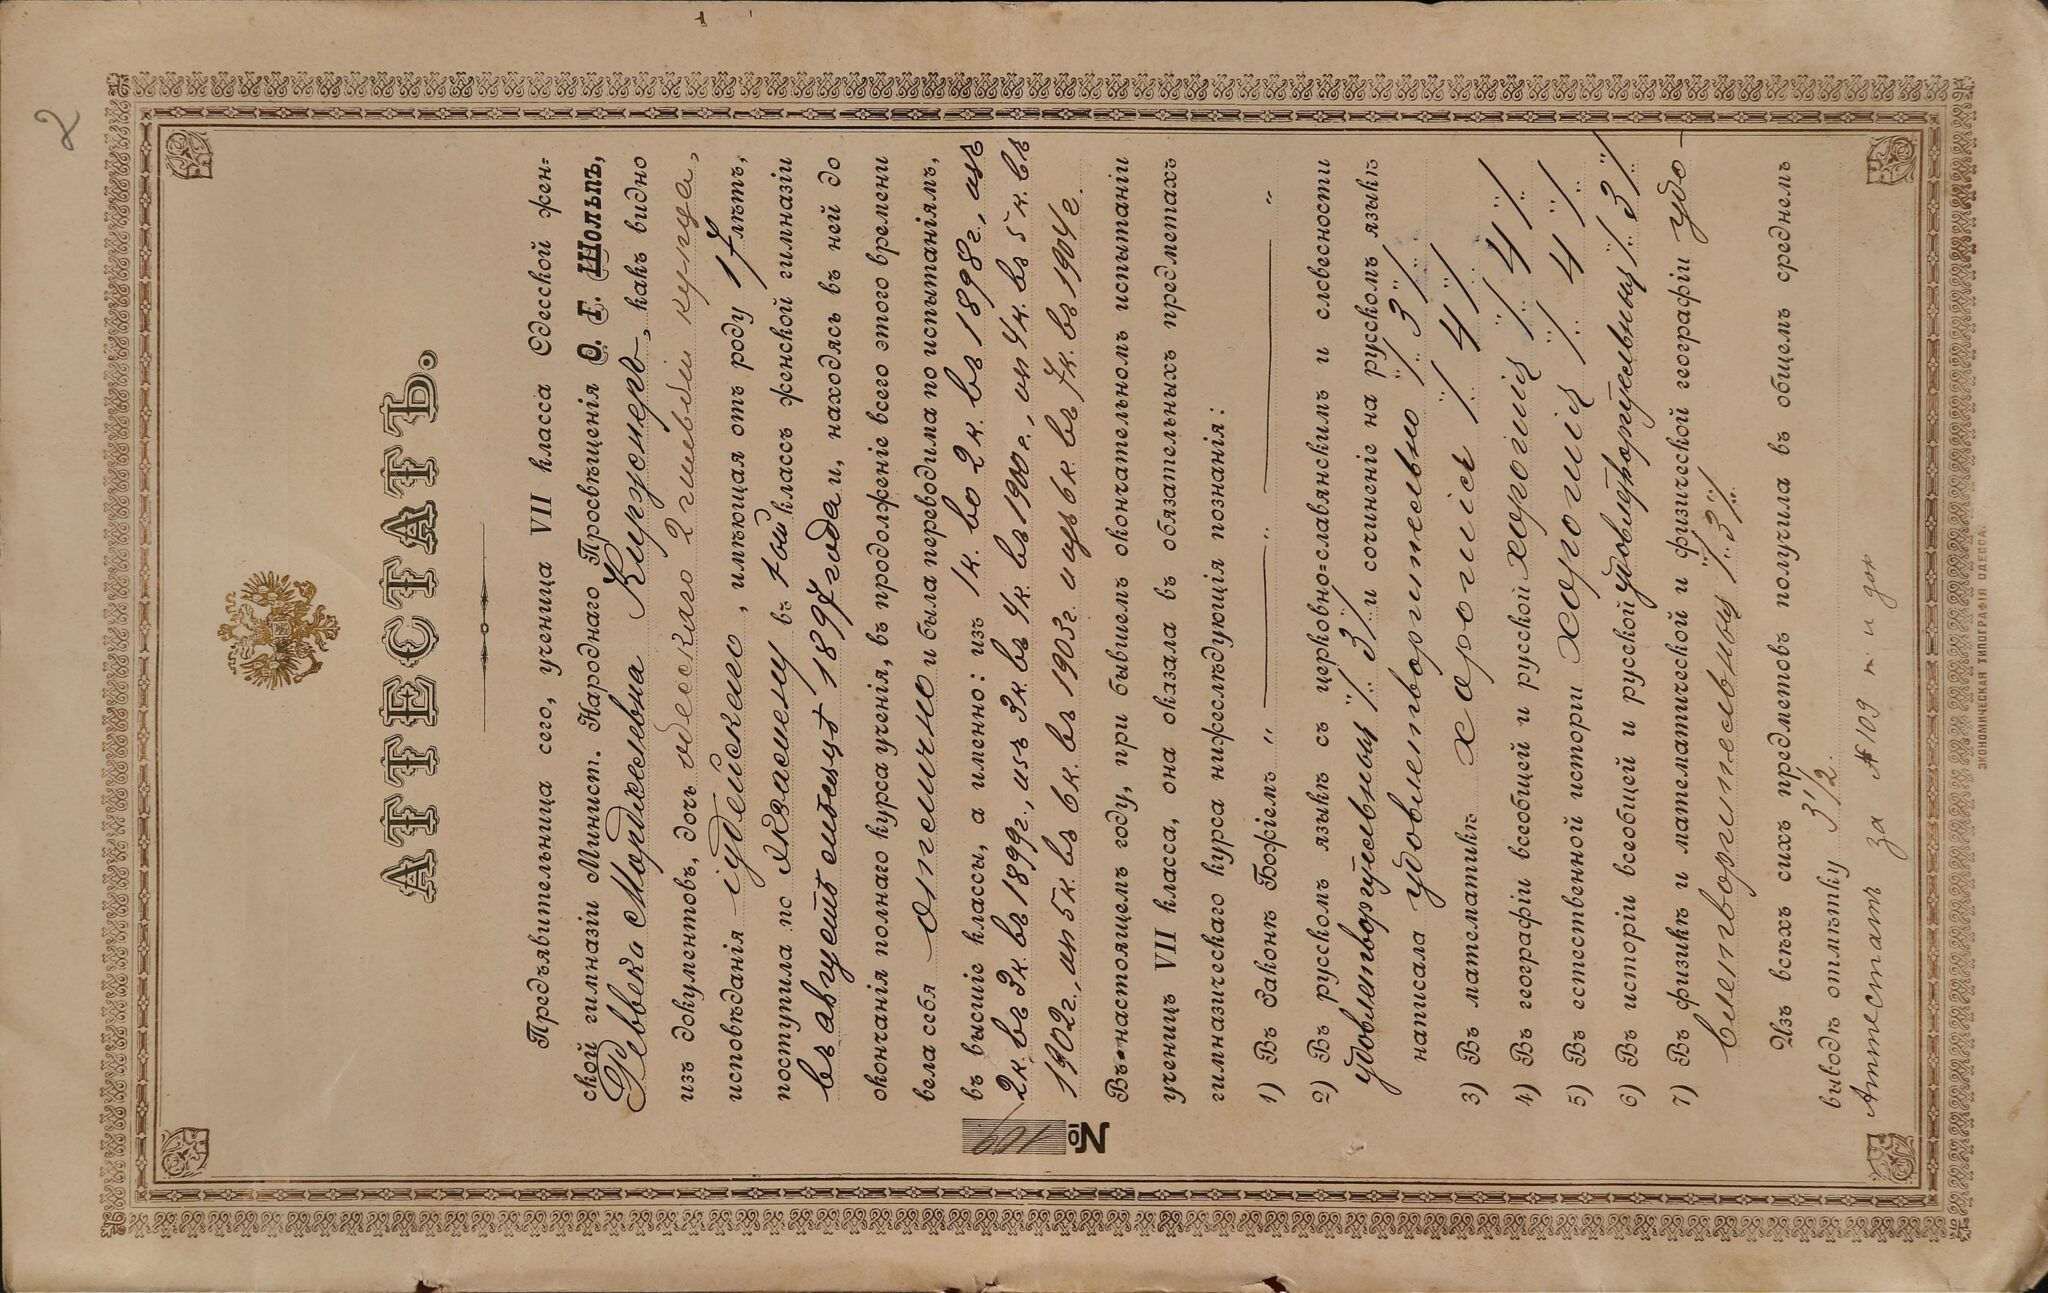 2
АТТЕСТАТЪ.
Предъявительница сего, ученица VII класса Одесской жен=
ской гимназіи Минист. Народнаго Просвѣщенія Ѳ. Г. Шольпъ,
Реввека Мордкелевна Киржнеръ, какъ видно
изъ документовъ, дочь одесскаго 2 гильдіи купца,
исповѣданія іудейскаго, имѣющая отъ роду 17 лѣтъ,
поступила по экзамену въ 1ой классъ женской гимназіи
въ августѣ мѣсяцѣ 1897 года и, находясь въ ней до
окончанія полнаго курса ученія, въ продолженіе всего этого времени
вела себя отлично и была переводима по испытаніямъ,
въ высшіе классы, а именно: изъ 1к. во 2к. въ 1898 г., изъ
2к. въ 3к. въ 1899г., изъ 3к. въ 4к. въ 1900г., из 4к. въ 5к. въ
1902г., из 5к. въ 6к. въ 1903г. и изъ 6к. въ 7к. въ 1904г.
№ 109
Въ настоящемъ году, при бывшемъ окончательномъ испытаніи
ученицъ VII класса, она оказала въ обязательныхъ предметахъ
гимназическаго курса нижеслѣдующія познанія:
1) Въ законѣ Божіемъ „ — „ — „
2) Въ русскомъ языкѣ съ церковно=славянскимъ и словесности
удовлетворительныя /3/ и сочиненіе на русскомъ языкѣ
написала удовлетворительно /3/.
3) Въ математикѣ хорошія /4/
4) Въ географіи всеобщей и русской хорошія /4/
5) Въ естественной исторіи хорошія /4/
6) Въ исторіи всеобщей и русской удовлетворительныя /3/
7) Въ физикѣ и математической и физической географіи удо-
влетворительныя /3/
Изъ всѣхъ сихъ предметовъ получила въ общемъ среднемъ
выводѣ отмѣтку 3 1/2.
Аттестатъ за № 109 и док
ЭКОНОМИЧЕСКАЯ ТИПОГРАФІЯ ОДЕССА.